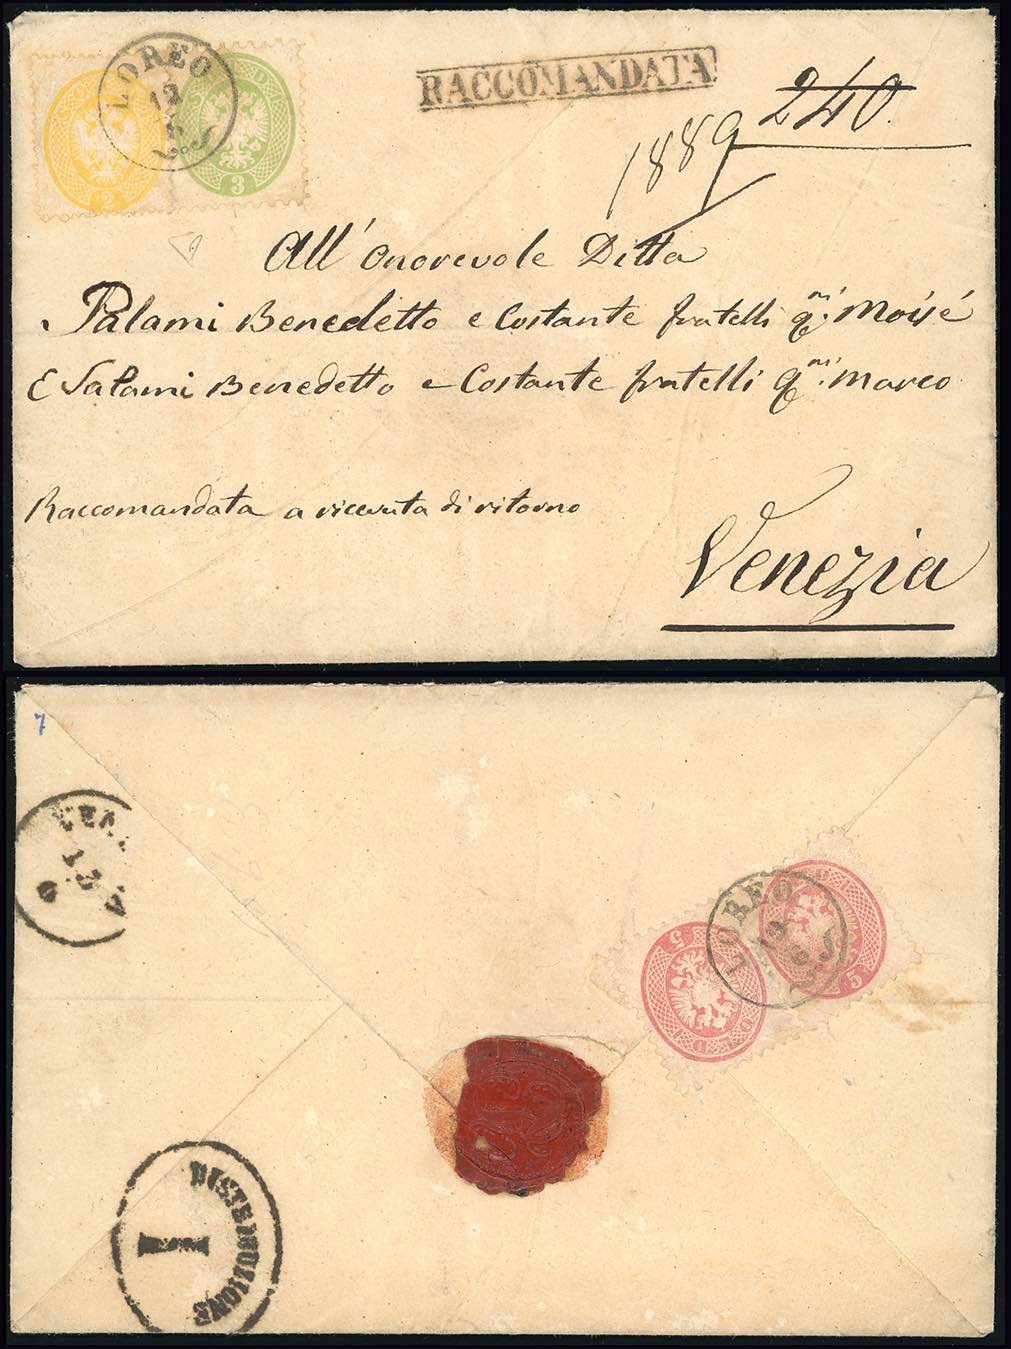 LOREO
12
2
3
RACCOMANDATA
240
1889
All' Onorevole Ditta
Salami Benedetto e Costante fratelli qm. Moisé
E Salami Benedetto e Costante fratelli qm. Marco
Raccomandata a ricevuta di ritorno
Venezia
7
12
LOREO
12
5
5
SOLDI
DISTRIBUZIONE
I